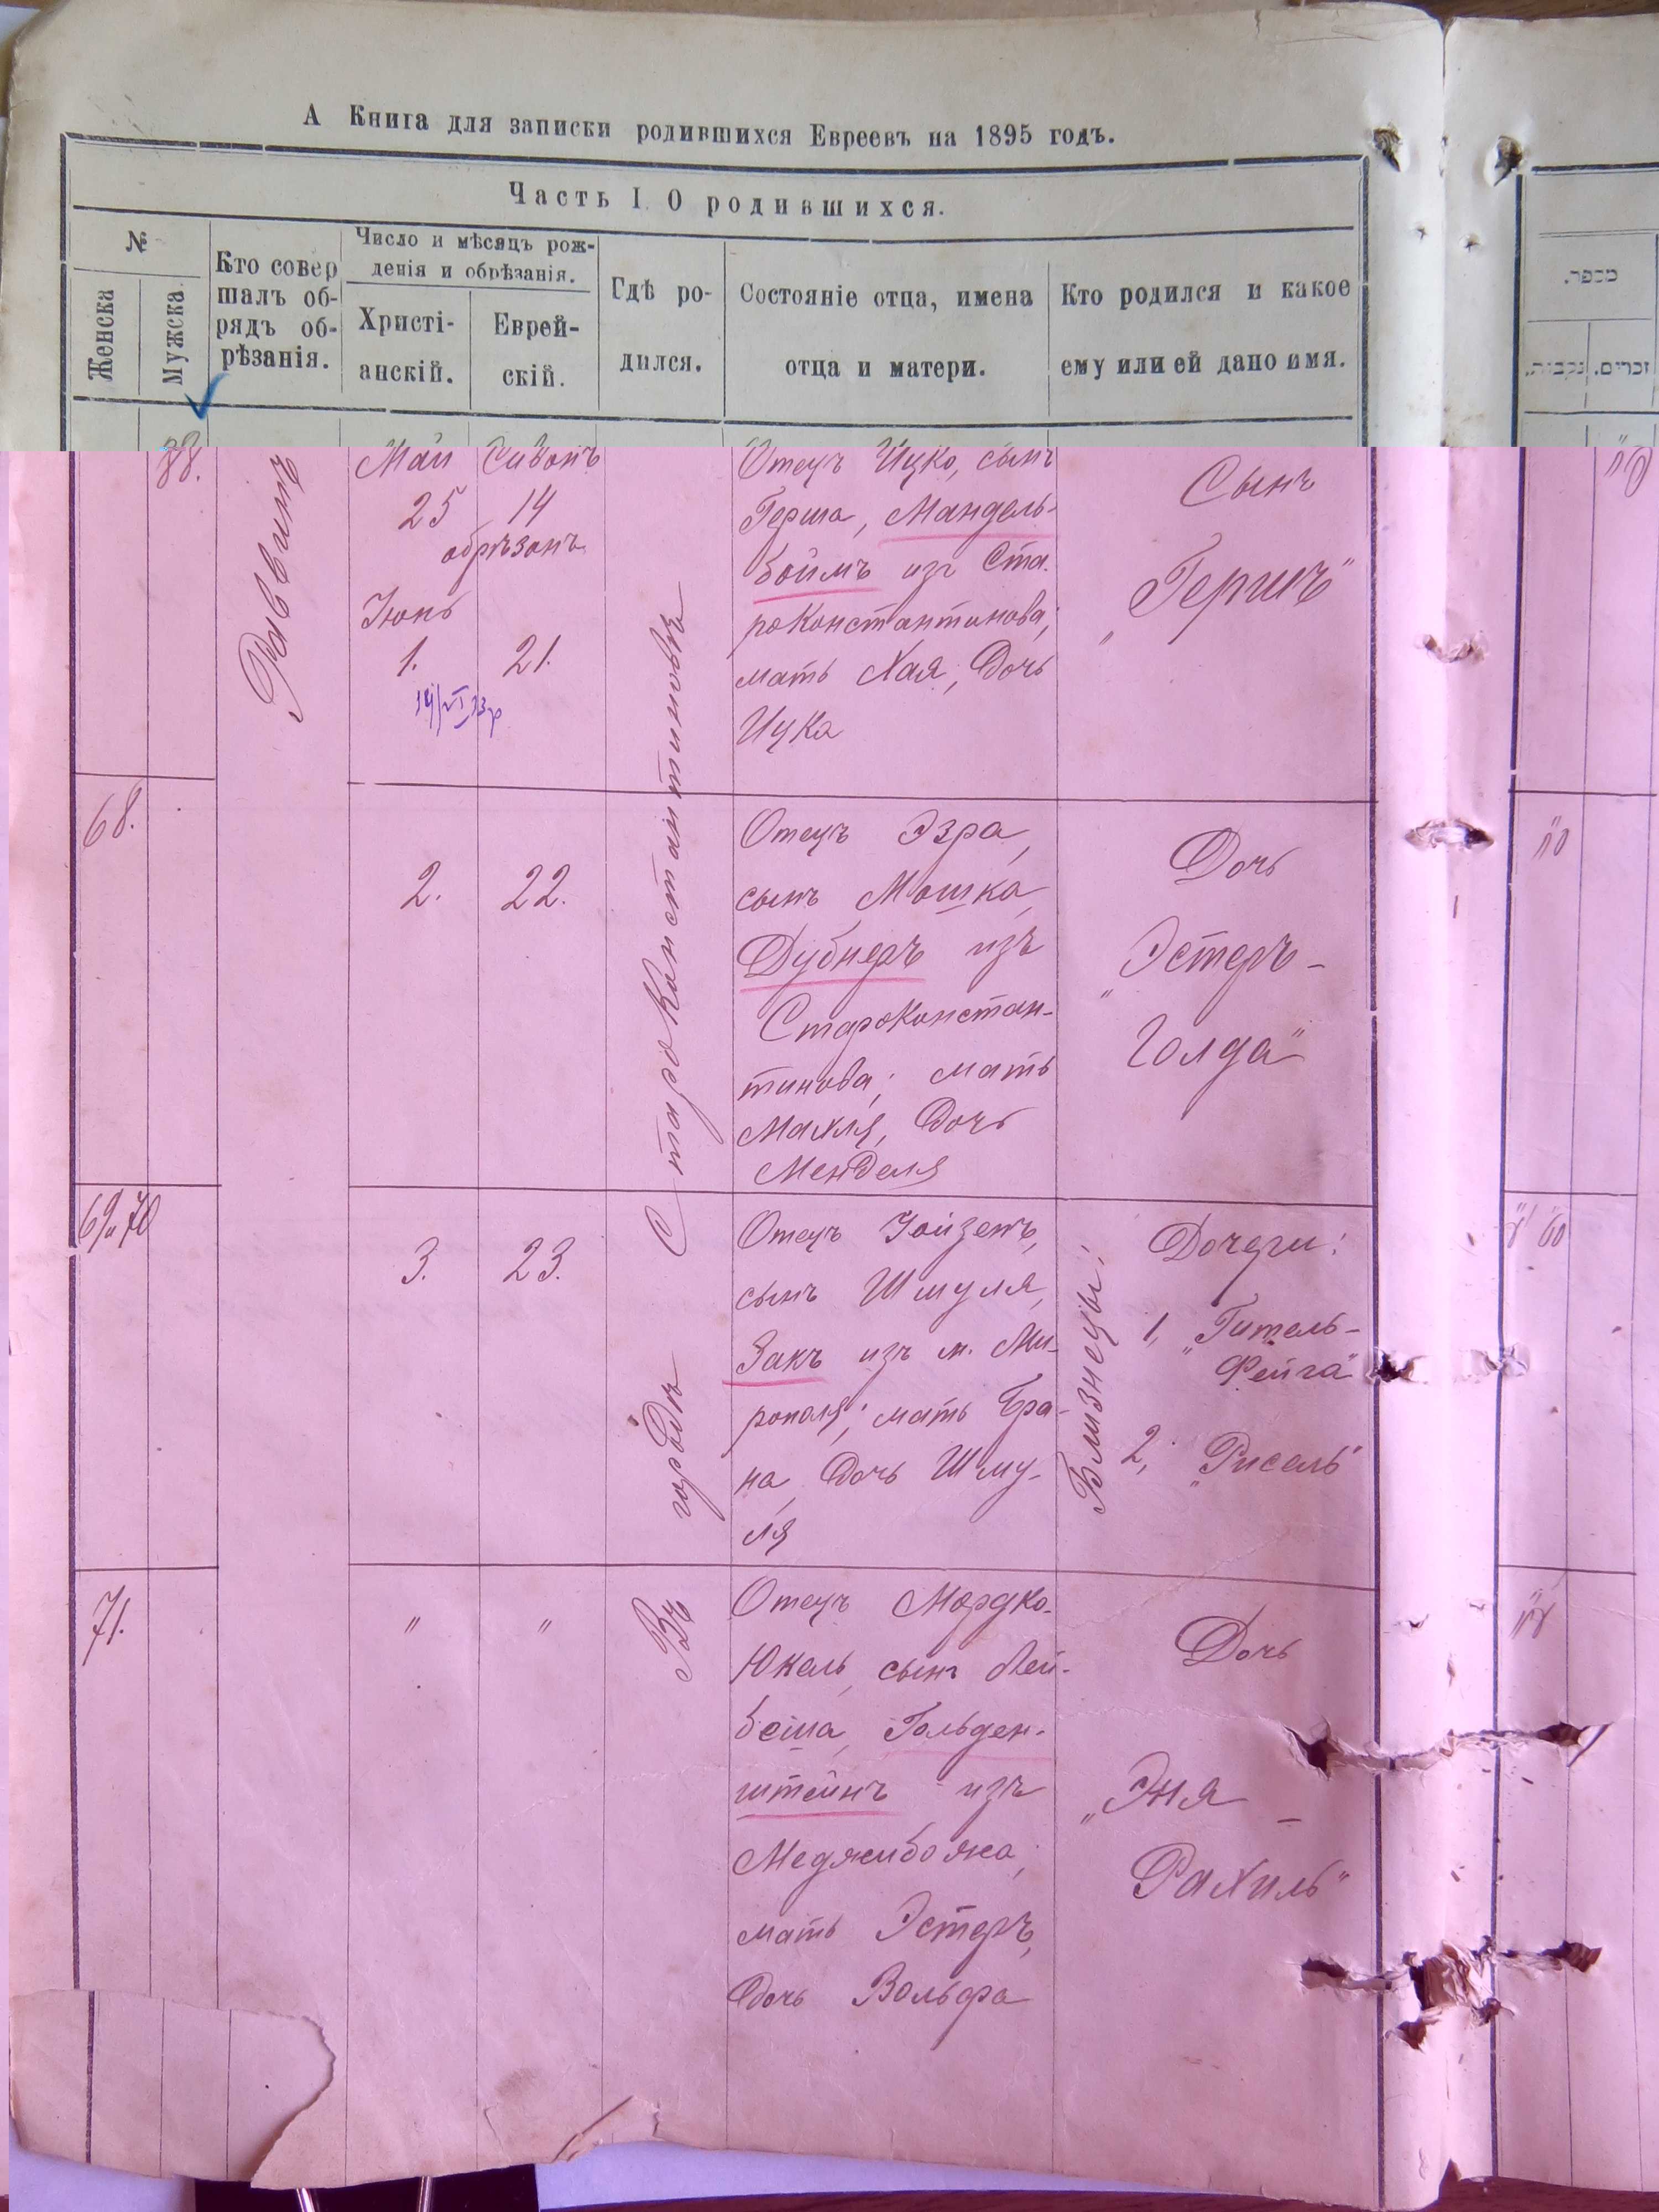 А Книга для записки родившихся Евреевъ на 1895 годъ.
Часть I О родившихся.
№
Женска
Мужска
Кто совер
шалъ об-
рядъ об-
рѣзанія.
Число и мѣсяцъ рож-
денія и обрѣзанія.
Христі-
анскій.
Еврей-
скій.
Гдѣ ро-
дился.
Состояніе отца, имена
отца и матери.
Кто родился и какое
ему или ей дано имя.
מספר.
נקבות.
זכרים.
88.
Раввинъ
Май
25
Сивонъ
14
обрѣзонъ
Іюнь
1.
21.
Въ городѣ Староконстантиновѣ
Отецъ Ицко, сынъ
Герша, Мандель-
боймъ изъ Ста-
роконстантинова;
мать Хая, дочь
Ицка
Сынъ
„Гершъ"
68.
2.
22.
Отецъ Эзра,
сынъ Мошка,
Дубнеръ изъ
Староконстан-
тинова; мать
Махля, дочь
Менделя
Дочь
„Эстеръ-
Голда"
69 и 70
3.
23.
Отецъ Іойзепъ,
сынъ Шмуля,
Закъ изъ м. Ми-
рополя; мать Бра-
на, дочь Шму-
ля
Близнецы:
Дочери:
1, „Гитель-
Фейга"
2, „Рисель"
71.
"
"
Отецъ Мордко-
Юкель, сынъ Лей-
беша, Гольден-
штейнъ изъ
Меджибожа,
мать Эстеръ,
дочь Вольфа
Дочь
„Эня-
Рахиль"